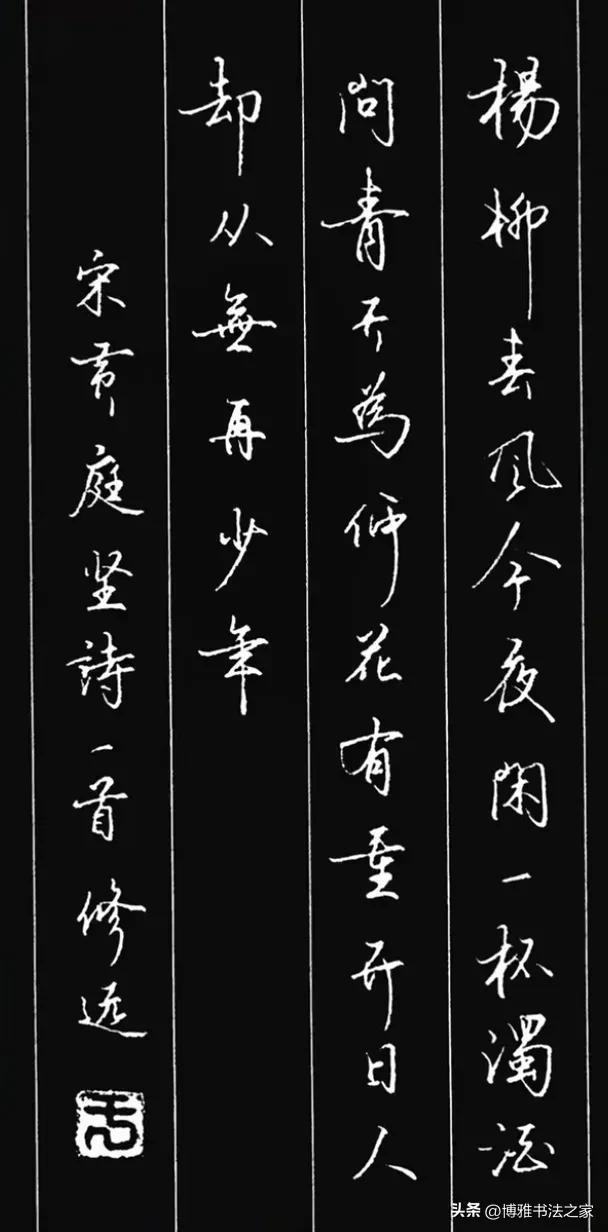 楊柳春风今夜閑一杯濁酒
問青天為何花有重开日人
却从無再少年
宋黄庭坚詩一首 修远
头条 @博雅书法之家